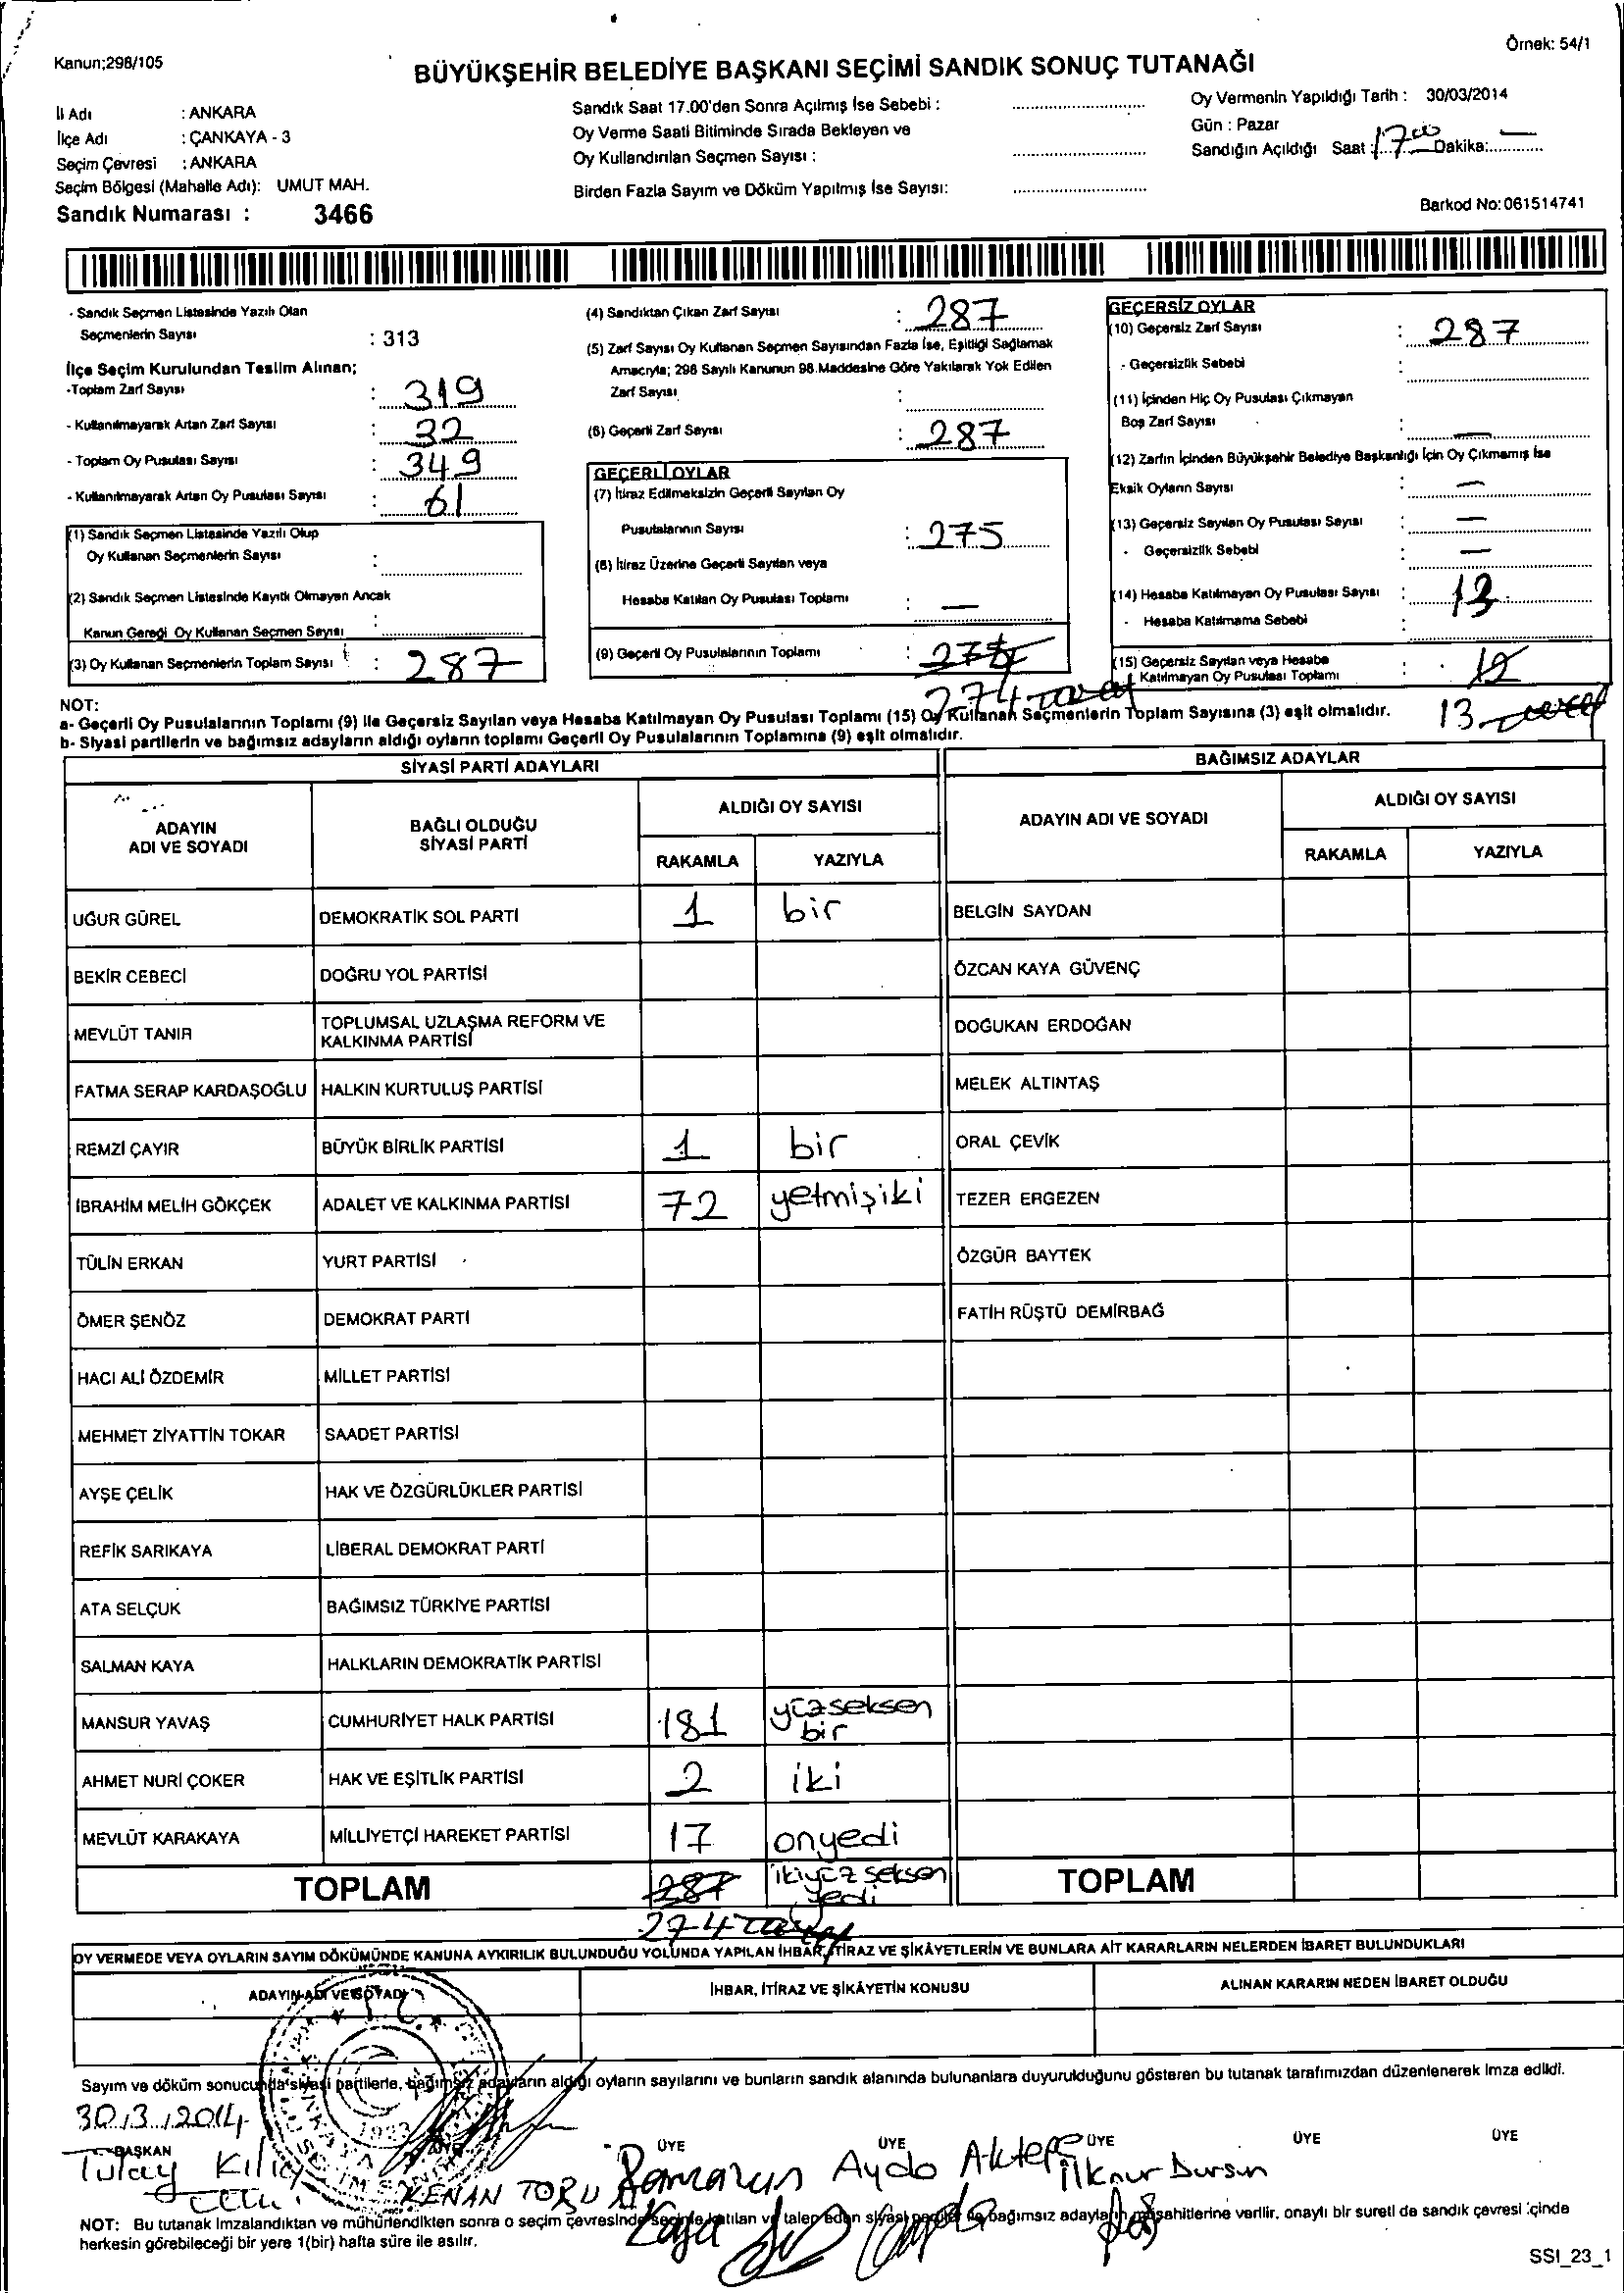 Örnek: 54/1
Kanun;298/105
BÜYÜKŞEHİR BELEDİYE BAŞKANI SEÇİMİ SANDIK SONUÇ TUTANAĞI
İl Adı : ANKARA
İlçe Adı : ÇANKAYA - 3
Seçim Çevresi : ANKARA
Seçim Bölgesi (Mahalle Adı): UMUT MAH.
Sandık Numarası : 3466
Sandık Saat 17.00'den Sonra Açılmış İse Sebebi :
Oy Verme Saati Bitiminde Sırada Bekleyen ve
Oy Kullandırılan Seçmen Sayısı :
Birden Fazla Sayım ve Döküm Yapılmış İse Sayısı:
Oy Vermenin Yapıldığı Tarih : 30/03/2014
Gün : Pazar
Sandığın Açıldığı Saat : 17 00 Dakika: —
Barkod No: 061514741
- Sandık Seçmen Listesinde Yazılı Olan
Seçmenlerin Sayısı : 313
İlçe Seçim Kurulundan Teslim Alınan;
-Toplam Zarf Sayısı : 319
- Kullanılmayarak Artan Zarf Sayısı : 32
- Toplam Oy Pusulası Sayısı : 349
- Kullanılmayarak Artan Oy Pusulası Sayısı : 61
(1) Sandık Seçmen Listesinde Yazılı Olup
Oy Kullanan Seçmenlerin Sayısı :
(2) Sandık Seçmen Listesinde Kayıtlı Olmayan Ancak
Kanun Gereği Oy Kullanan Seçmen Sayısı :
(3) Oy Kullanan Seçmenlerin Toplam Sayısı : 287
(4) Sandıktan Çıkan Zarf Sayısı : 287
(5) Zarf Sayısı Oy Kullanan Seçmen Sayısından Fazla İse, Eşitliği Sağlamak
Amacıyla; 298 Sayılı Kanunun 98.Maddesine Göre Yakılarak Yok Edilen
Zarf Sayısı :
(6) Geçerli Zarf Sayısı : 287
GEÇERLİ OYLAR
(7) İtiraz Edilmeksizin Geçerli Sayılan Oy
Pusulalarının Sayısı : 275
(8) İtiraz Üzerine Geçerli Sayılan veya
Hesaba Katılan Oy Pusulası Toplamı : —
(9) Geçerli Oy Pusulalarının Toplamı :
274
GEÇERSİZ OYLAR
(10) Geçersiz Zarf Sayısı : 287
- Geçersizlik Sebebi :
(11) İçinden Hiç Oy Pusulası Çıkmayan
Boş Zarf Sayısı : —
(12) Zarfın İçinden Büyükşehir Belediye Başkanlığı İçin Oy Çıkmamış İse
Eksik Oyların Sayısı : —
(13) Geçersiz Sayılan Oy Pusulası Sayısı : —
- Geçersizlik Sebebi : —
(14) Hesaba Katılmayan Oy Pusulası Sayısı : 13
- Hesaba Katılmama Sebebi :
(15) Geçersiz Sayılan veya Hesaba
Katılmayan Oy Pusulası Toplamı : 12
13
NOT:
a- Geçerli Oy Pusulalarının Toplamı (9) ile Geçersiz Sayılan veya Hesaba Katılmayan Oy Pusulası Toplamı (15) Oy Kullanan Seçmenlerin Toplam Sayısına (3) eşit olmalıdır.
b- Siyasi partilerin ve bağımsız adayların aldığı oyların toplamı Geçerli Oy Pusulalarının Toplamına (9) eşit olmalıdır.
SİYASİ PARTİ ADAYLARI
ADAYIN ADI VE SOYADI BAĞLI OLDUĞU SİYASİ PARTİ ALDIĞI OY SAYISI
RAKAMLA YAZIYLA
UĞUR GÜREL DEMOKRATİK SOL PARTİ 1 bir
BEKİR CEBECİ DOĞRU YOL PARTİSİ
MEVLÜT TANIR TOPLUMSAL UZLAŞMA REFORM VE KALKINMA PARTİSİ
FATMA SERAP KARDAŞOĞLU HALKIN KURTULUŞ PARTİSİ
REMZİ ÇAYIR BÜYÜK BİRLİK PARTİSİ 1 bir
İBRAHİM MELİH GÖKÇEK ADALET VE KALKINMA PARTİSİ 72 yetmişiki
TÜLİN ERKAN YURT PARTİSİ
ÖMER ŞENÖZ DEMOKRAT PARTİ
HACI ALİ ÖZDEMİR MİLLET PARTİSİ
MEHMET ZİYATTİN TOKAR SAADET PARTİSİ
AYŞE ÇELİK HAK VE ÖZGÜRLÜKLER PARTİSİ
REFİK SARIKAYA LİBERAL DEMOKRAT PARTİ
ATA SELÇUK BAĞIMSIZ TÜRKİYE PARTİSİ
SALMAN KAYA HALKLARIN DEMOKRATİK PARTİSİ
MANSUR YAVAŞ CUMHURİYET HALK PARTİSİ 181 yüzseksen bir
AHMET NURİ ÇOKER HAK VE EŞİTLİK PARTİSİ 2 iki
MEVLÜT KARAKAYA MİLLİYETÇİ HAREKET PARTİSİ 17 onyedi
TOPLAM 287 ikiyüz seksen yedi
274
BAĞIMSIZ ADAYLAR
ADAYIN ADI VE SOYADI ALDIĞI OY SAYISI
RAKAMLA YAZIYLA
BELGİN SAYDAN
ÖZCAN KAYA GÜVENÇ
DOĞUKAN ERDOĞAN
MELEK ALTINTAŞ
ORAL ÇEVİK
TEZER ERGEZEN
ÖZGÜR BAYTEK
FATİH RÜŞTÜ DEMİRBAĞ
TOPLAM
OY VERMEDE VEYA OYLARIN SAYIM DÖKÜMÜNDE KANUNA AYKIRILIK BULUNDUĞU YOLUNDA YAPILAN İHBAR, İTİRAZ VE ŞİKÂYETLERİN VE BUNLARA AİT KARARLARIN NELERDEN İBARET BULUNDUKLARI
ADAYIN ADI VE SOYADI İHBAR, İTİRAZ VE ŞİKÂYETİN KONUSU ALINAN KARARIN NEDEN İBARET OLDUĞU
T.C.
Sayım ve döküm sonucunda siyasi partilerle, bağımsız adayların aldığı oyların sayılarını ve bunların sandık alanında bulunanlara duyurulduğunu gösteren bu tutanak tarafımızdan düzenlenerek imza edildi.
30/3/2014
BAŞKAN ÜYE ÜYE ÜYE ÜYE ÜYE
Tülay Kılıç
KENAN TORU
Ramazan Kaya
Ayda Aktepe
İlknur Dursun
NOT: Bu tutanak imzalandıktan ve mühürlendikten sonra o seçim çevresinde seçime katılan ve talep eden siyasi partiler ile bağımsız adayların müşahitlerine verilir. onaylı bir sureti de sandık çevresi içinde
herkesin görebileceği bir yere 1(bir) hafta süre ile asılır.
SSI_23_1